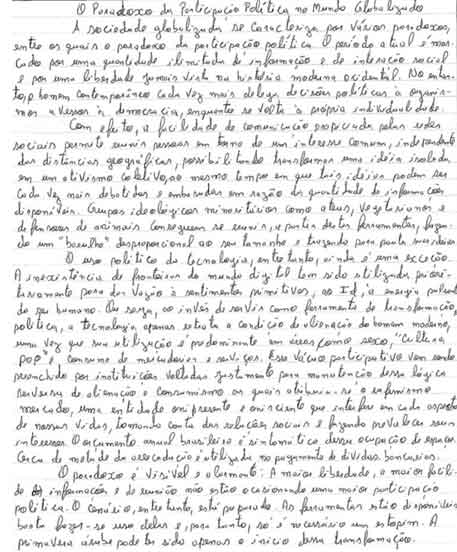 O Paradoxo da Participação Política no Mundo Globalizado
A sociedade globalizada se caracteriza por vários paradoxos,
entre os quais o paradoxo da participação política. O período atual é mar-
cado por uma quantidade ilimitada de informação e de interação social
e por uma liberdade jamais vista na história moderna ocidental. No entan-
to, o homem contemporâneo cada vez mais delega decisões políticas à organis-
mos avessos à democracia, enquanto se volta à própria individualidade.
Com efeito, a facilidade de comunicação propiciada pelas redes
sociais permite reunir pessoas em torno de um interesse comum, independente
das distâncias geográficas, possibilitando transformar uma idéia isolada
em um ativismo coletivo, ao mesmo tempo em que tais idéias podem ser
cada vez mais debatidas e embasadas em razão da quantidade de informações
disponíveis. Grupos ideológicos minoritários como ateus, vegetarianos e
defensores de animais conseguem se reunir, a partir destas ferramentas, fazen-
do um "barulho" desproporcional ao seu tamanho e trazendo para pauta suas ideias
O uso político da tecnologia, entretanto, ainda é uma exceção.
A inexistência de fronteiras do mundo digital tem sido utilizada priori-
tariamente para dar vazão à sentimentos primitivos, ao Id, à energia pulsante
do ser humano. Ou seja, ao invés de servir como ferramenta de transformação
política, a tecnologia apenas retrata a condição de alienação do homem moderno,
uma vez que sua utilização é predominante em áreas como sexo, "cultura
pop" e consumo de mercadorias e serviços. Esse vácuo participativo vem sendo
preenchido por instituições voltadas justamente para manutenção dessa lógica
perversa de alienação e consumismo as quais atribuiu-se o eufemismo
mercado, uma entidade onipresente e onisciente que interfere em cada aspecto
de nossas vidas, tomando conta das relações sociais e fazendo prevalecer seus
interesses. O orçamento anual brasileiro é sintomático dessa ocupação de espaços.
Cerca de metade da arrecadação é utilizada no pagamento de dívidas bancárias.
O paradoxo é visível e alarmante: A maior liberdade, a maior facili-
de informações e de reunião não estão ocasionando uma maior participação
política. O cenário, entretanto, está preparado. As ferramentas estão disponíveis
basta fazer-se uso delas e, para tanto, só é necessário um estopim. A
primavera árabe pode ter sido apenas o início dessa transformação.